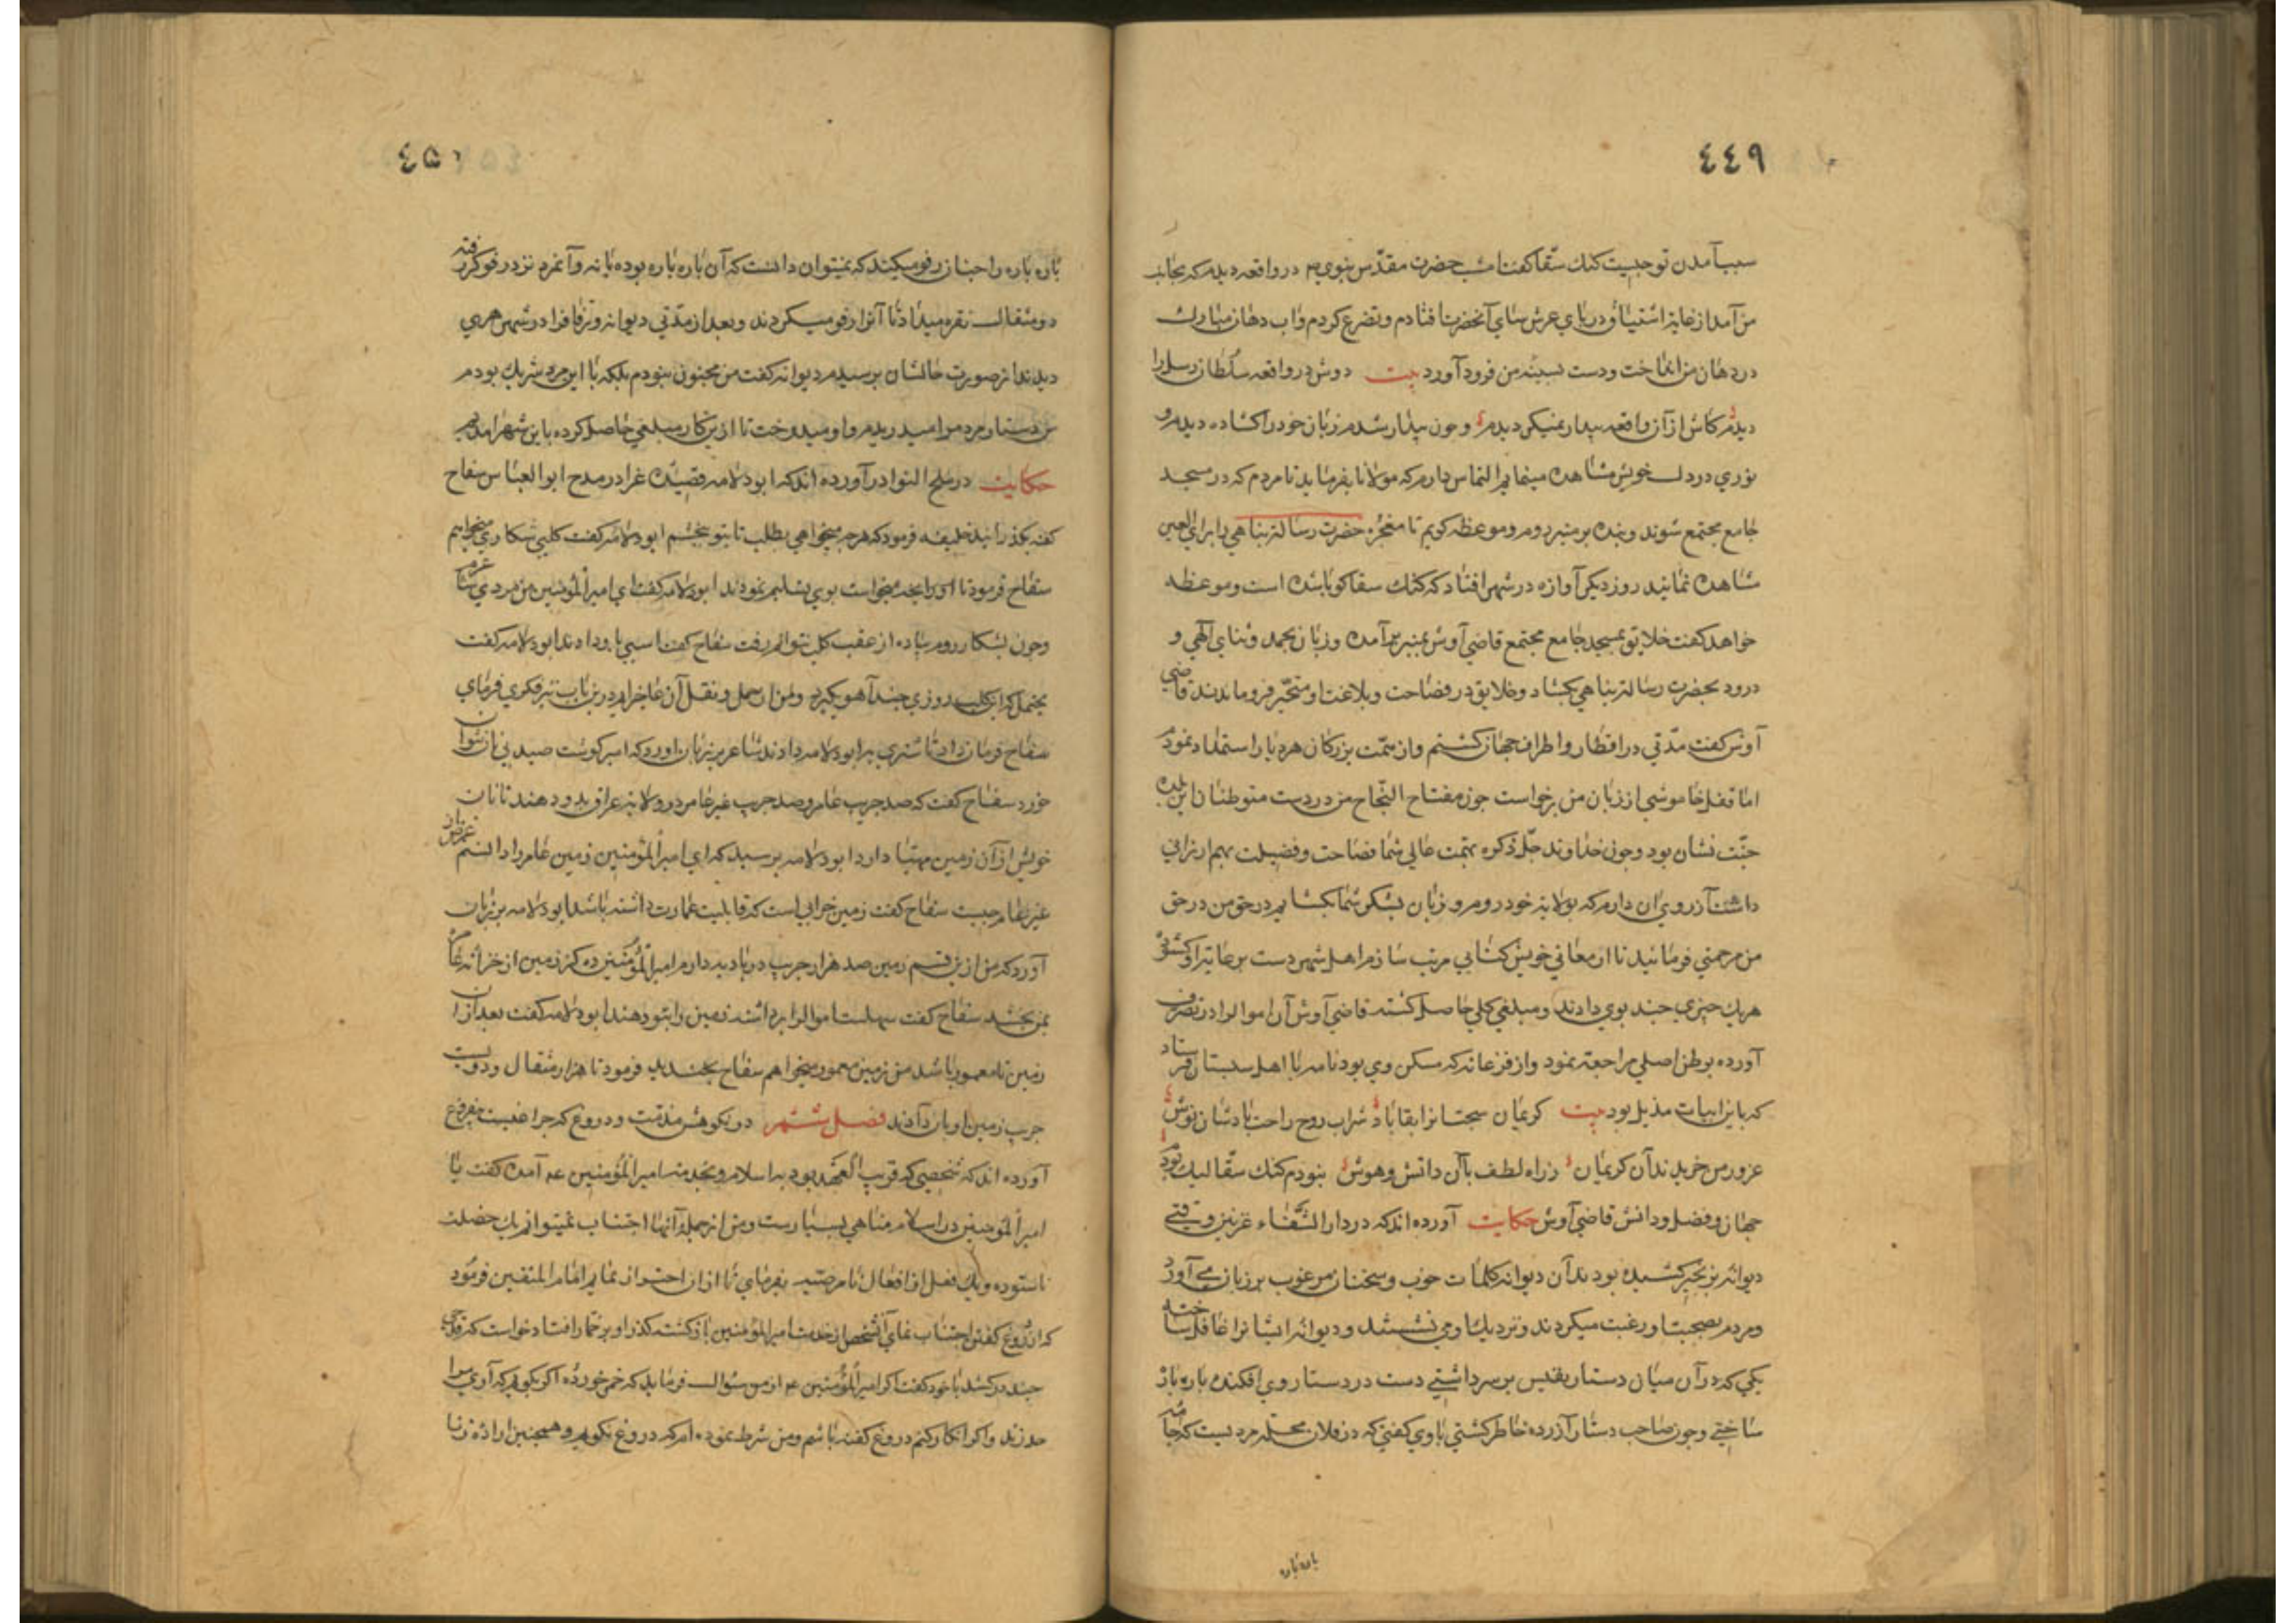 ٤٤٩
سبب آمدن تو چیست کنك سقا کفت امشب حضرت مقدس نبوی در واقعه دیدم که بجانب
من آمد از غایة اشتیاق در پای عرش سای آنحضرت افتادم و تضرع کردم و آب دهان مبارك
در دهان من انداخت و دست بسینه من فرود آورد بیت دوش در واقعه سلطان رسل را
دیدم کاش از آن واقعه بیدار نمیکردیدم و چون بیدار شدم زبان خود را کشاده دیدم و
نوری در دل خویش مشاهده مینمایم التماس دارم که مولانا بفرماید تا مردم که در مسجد
جامع مجتمع شوند و بنده بر منبر روم و موعظه کویم تا معجزه حضرت رسالة پناهی را برای العین
مشاهده نمایند روز دیکر آوازه در شهر افتاد که کنك سقا کویا شده است و موعظه
خواهد کفت خلایق بمسجد جامع مجتمع قاضی آوش بمنبر برآمده و زبان بحمد و ثنای الهی و
درود بحضرت رسالة پناهی بکشاد و خلایق در فصاحت و بلاغت او متحیر فرو ماندند قاضی
آوش کفت مدتی در اقطار و اطراف جهان کشتم و از همت بزرکان هر دیار استمداد نمودم
اما قفل خاموشی از زبان من برنخواست چون مفتاح النجاح من در دست متوطنان این بلده
جنت نشان بود و چون خداوند جل ذکره بهمت عالی شما فصاحت و فضیلت بهم ارزانی
داشت آرزوی آن دارم که بولایة خود روم و زبان بشکر شما بکشایم در حق من در حق
من مرحمتی فرمائید تا از معانی خویش کتابی مرتب سازم اهل شهر دست برعایة او کشوده
هریك چیزی چند بوی دادند و مبلغی کلی حاصل کشته قاضی آوش آن اموال را در تصرف
آورده بوطن اصلی مراجعة نمود و از فرغانه که مسکن وی بود نامه با اهل سیستان فرستاد
که باین ابیات مذیل بود بیت کریمان سجستانرا بقا باد شراب روح راحت بادشان نوش
غرور من خریدند آن کریمان ز راه لطف با آن دانش و هوش نبودم کنك سقا لیك بودم
جهان و فضل و دانش قاضی آوش حکایت آورده اند که در دار الشفاء غزنین وقتی
دیوانه بزنجیر کشیده بودند آن دیوانه کلمات خوب و سخنان مرغوب بر زبان می آورد
و مردم بصحبت او رغبت میکردند و نزدیك او می نشستند و دیوانه ایشانرا غافل ساخته
یکی که در آن میان دستار نفیس بر سر داشتی دست در دستار وی افکنده پاره پاره
ساختی و چون صاحب دستار آزرده خاطر کشتی با وی کفتی که در فلان محله مردیست که جامه
پاره پاره
٤٥٠
پاره پاره را چنان رفو میکند که نمیتوان دانست که آن پاره پاره بوده یا نه و آنمرد نزد رفوکر رفته
دو مثقال نقره میداد تا آنرا رفو میکردند و بعد از مدتی دیوانه و رفوکر را در شهر هری
دیدند از صورت حالشان پرسیدم دیوانه کفت من مجنون نبودم بلکه با این مرد شریك بودم
من دستار مردم را میدریدم و او میدوخت تا ازین کار مبلغی حاصل کرده باین شهر آمدیم
حکایت در ملح النوادر آورده اند که ابودلامه قصیدهٔ غرا در مدح ابوالعباس سفاح
کفته بکذرانید خلیفه فرمود که هرچه میخواهی بطلب تا بتو بخشم ابودلامه کفت کلبی شکاری میخواهم
سفاح فرمود تا آنچه میخواست بوی تسلیم نمودند ابودلامه کفت ای امیر المؤمنین من مردی
و چون بشکار روم پیاده از عقب کلب نتوانم رفت سفاح کفت اسبی باو دادند ابودلامه کفت
یحتمل که این کلب روزی چند آهو بکیرد و من از حمل و نقل آن عاجزم درین باب نیز فکری فرمای
سفاح فرمان داد تا شتری بابودلامه دادند شاعر بر زبان آورد که امیر کوشت صید بی نان نتوان
خورد سفاح کفت که صد جریب عامر و صد جریب غیر عامر در ولایة عراق بدو دهند تا نان
خویش از آن زمین مهیا دارد ابودلامه پرسید که ای امیر المؤمنین زمین عامر را دانستم غرض از
غیر عامر چیست سفاح کفت زمین خرابی است که قابلیت عمارت داشته باشد ابودلامه بر زبان
آورد که من ازین قسم زمین صد هزار جریب در بادیه دارم امیر المؤمنین ده کز زمین از خزانه عامره
بمن بخشد سفاح کفت سهلست اموال را برداشته زمین را بتو دهند ابودلامه کفت بعد از آن
زمین نامعمور باشد من زمین معمور میخواهم سفاح بخندید فرمود تا هزار مثقال و دویست
جریب زمین باو دادند فصل ششم در نکوهش مذمت و دروغ که
آورده اند که شخصی که قریب العهد بود باسلام و بخدمت امیر المؤمنین عم آمده کفت یا
امیر المؤمنین در اسلام مناهی بسیارست و من از جمله آنها اجتناب نمیتوانم یك خصلت
ناستوده و یك فعل از افعال نامرضیه بفرمای تا از آن احتراز نمایم امام المتقین فرمود
که از دروغ کفتن اجتناب نمای آنشخص از خدمت امیر المؤمنین بازکشته کذر او بر خمار افتاد خواست که قدحی
چند درکشد با خود کفت اکر امیر المؤمنین عم از من سؤال فرماید که خمر خورده اکر بکویم که آری مرا
حد زند و اکر انکار کنم دروغ کفته باشم و من شرط نموده ام که دروغ نکویم و همچنین اراده زنا